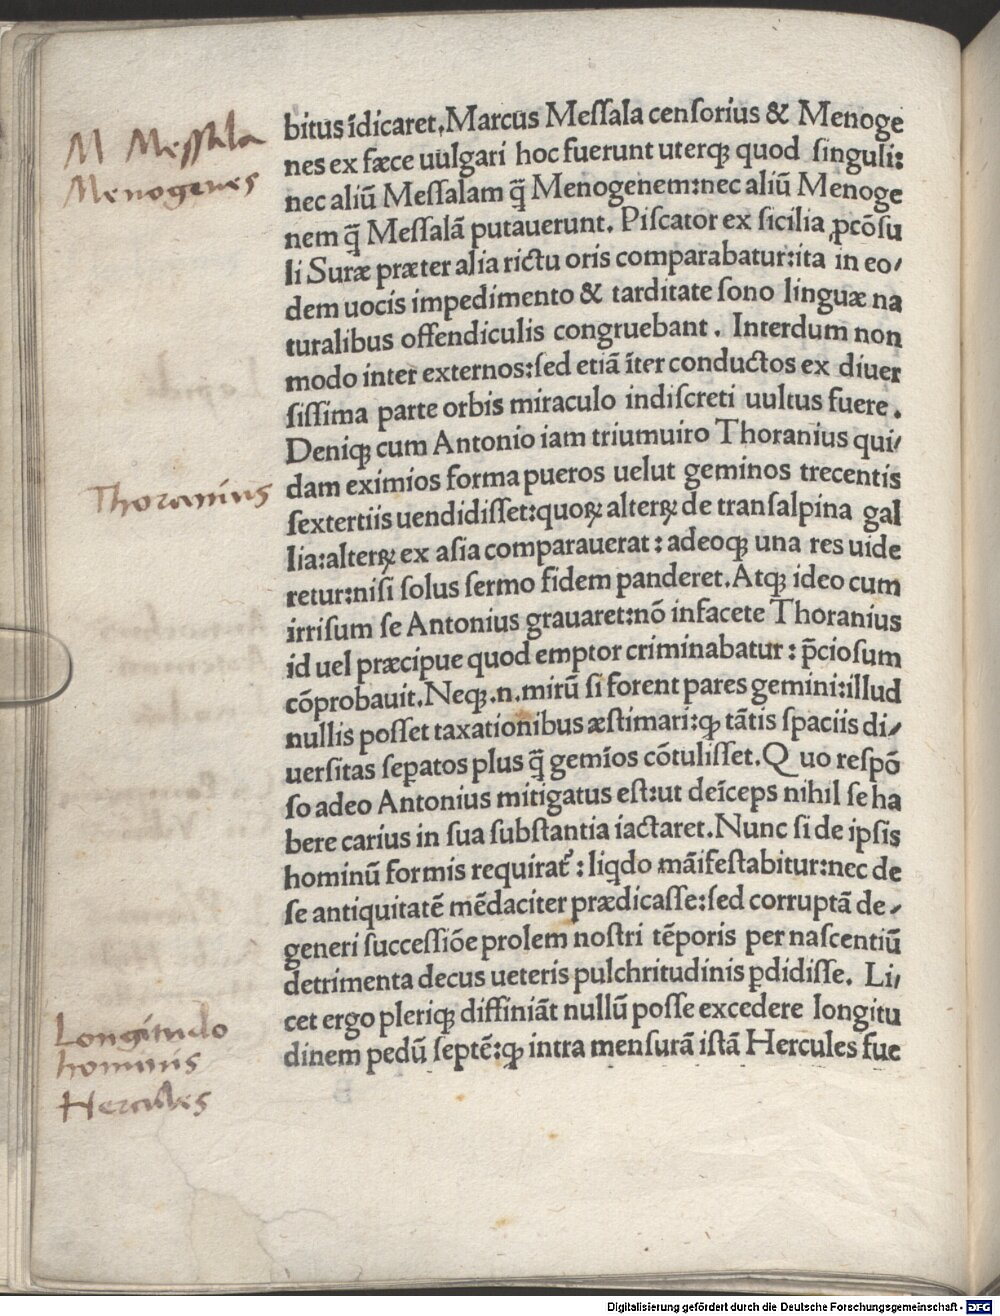 M Messala
Menogenes
bitus īdicaret. Marcus Meſſala cenſorius & Menoge
nes ex fæce uulgari hoc fuerunt uterqꝫ quod ſinguli:
nec aliū Meſſalam q̄ Menogenem: nec aliū Menoge
nem q̄ Meſſalā putauerunt. Piſcator ex ſicilia ꝓcōſu
li Suræ præter alia rictu oris comparabatur: ita in eo/
dem uocis impedimento & tarditate ſono linguæ na
turalibus offendiculis congruebant. Interdum non
modo inter externos: ſed etiā īter conductos ex diuer
ſiſſima parte orbis miraculo indiſcreti uultus fuere.
Deniqꝫ cum Antonio iam triumuiro Thoranius qui/
Thoranius
dam eximios forma pueros uelut geminos trecentis
ſextertiis uendidiſſet: quoꝝ alterꝝ de tranſalpina gal
lia: alterꝝ ex aſia comparauerat: adeoqꝫ una res uide
retur: niſi ſolus ſermo fidem panderet. Atqꝫ ideo cum
irriſum ſe Antonius grauaret: nō infacete Thoranius
id uel præcipue quod emptor criminabatur: p̄cioſum
cōprobauit. Neqꝫ .n. mirū ſi forent pares gemini: illud
nullis poſſet taxationibus æſtimari: ꝙ tātis ſpaciis di/
uerſitas ſeꝑatos plus q̄ gemīos cōtuliſſet. Quo reſpō
ſo adeo Antonius mitigatus eſt: ut deīceps nihil ſe ha
bere carius in ſua ſubſtantia iactaret. Nunc ſi de ipſis
hominū formis requirat᷑: liqdo māifeſtabitur: nec de
ſe antiquitatē mēdaciter prædicaſſe: ſed corruptā de/
generi ſucceſſiōe prolem noſtri tēporis per naſcentiū
detrimenta decus ueteris pulchritudinis ꝑdidiſſe. Li/
cet ergo pleriqꝫ diffiniāt nullū poſſe excedere longitu
Longitudo
hominis
dinem pedū ſeptē: ꝙ intra menſurā iſtā Hercules fue
Hercules
Digitalisierung gefördert durch die Deutsche Forschungsgemeinschaft - DFG